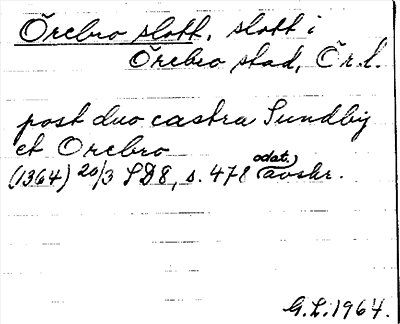 Örebro slott, slott i
Örebro stad, Ör.l.
post duo castra Sundby
et Orebro
(1364) 20/3 SD8, s. 478 odat. avskr.
G.L. 1964.